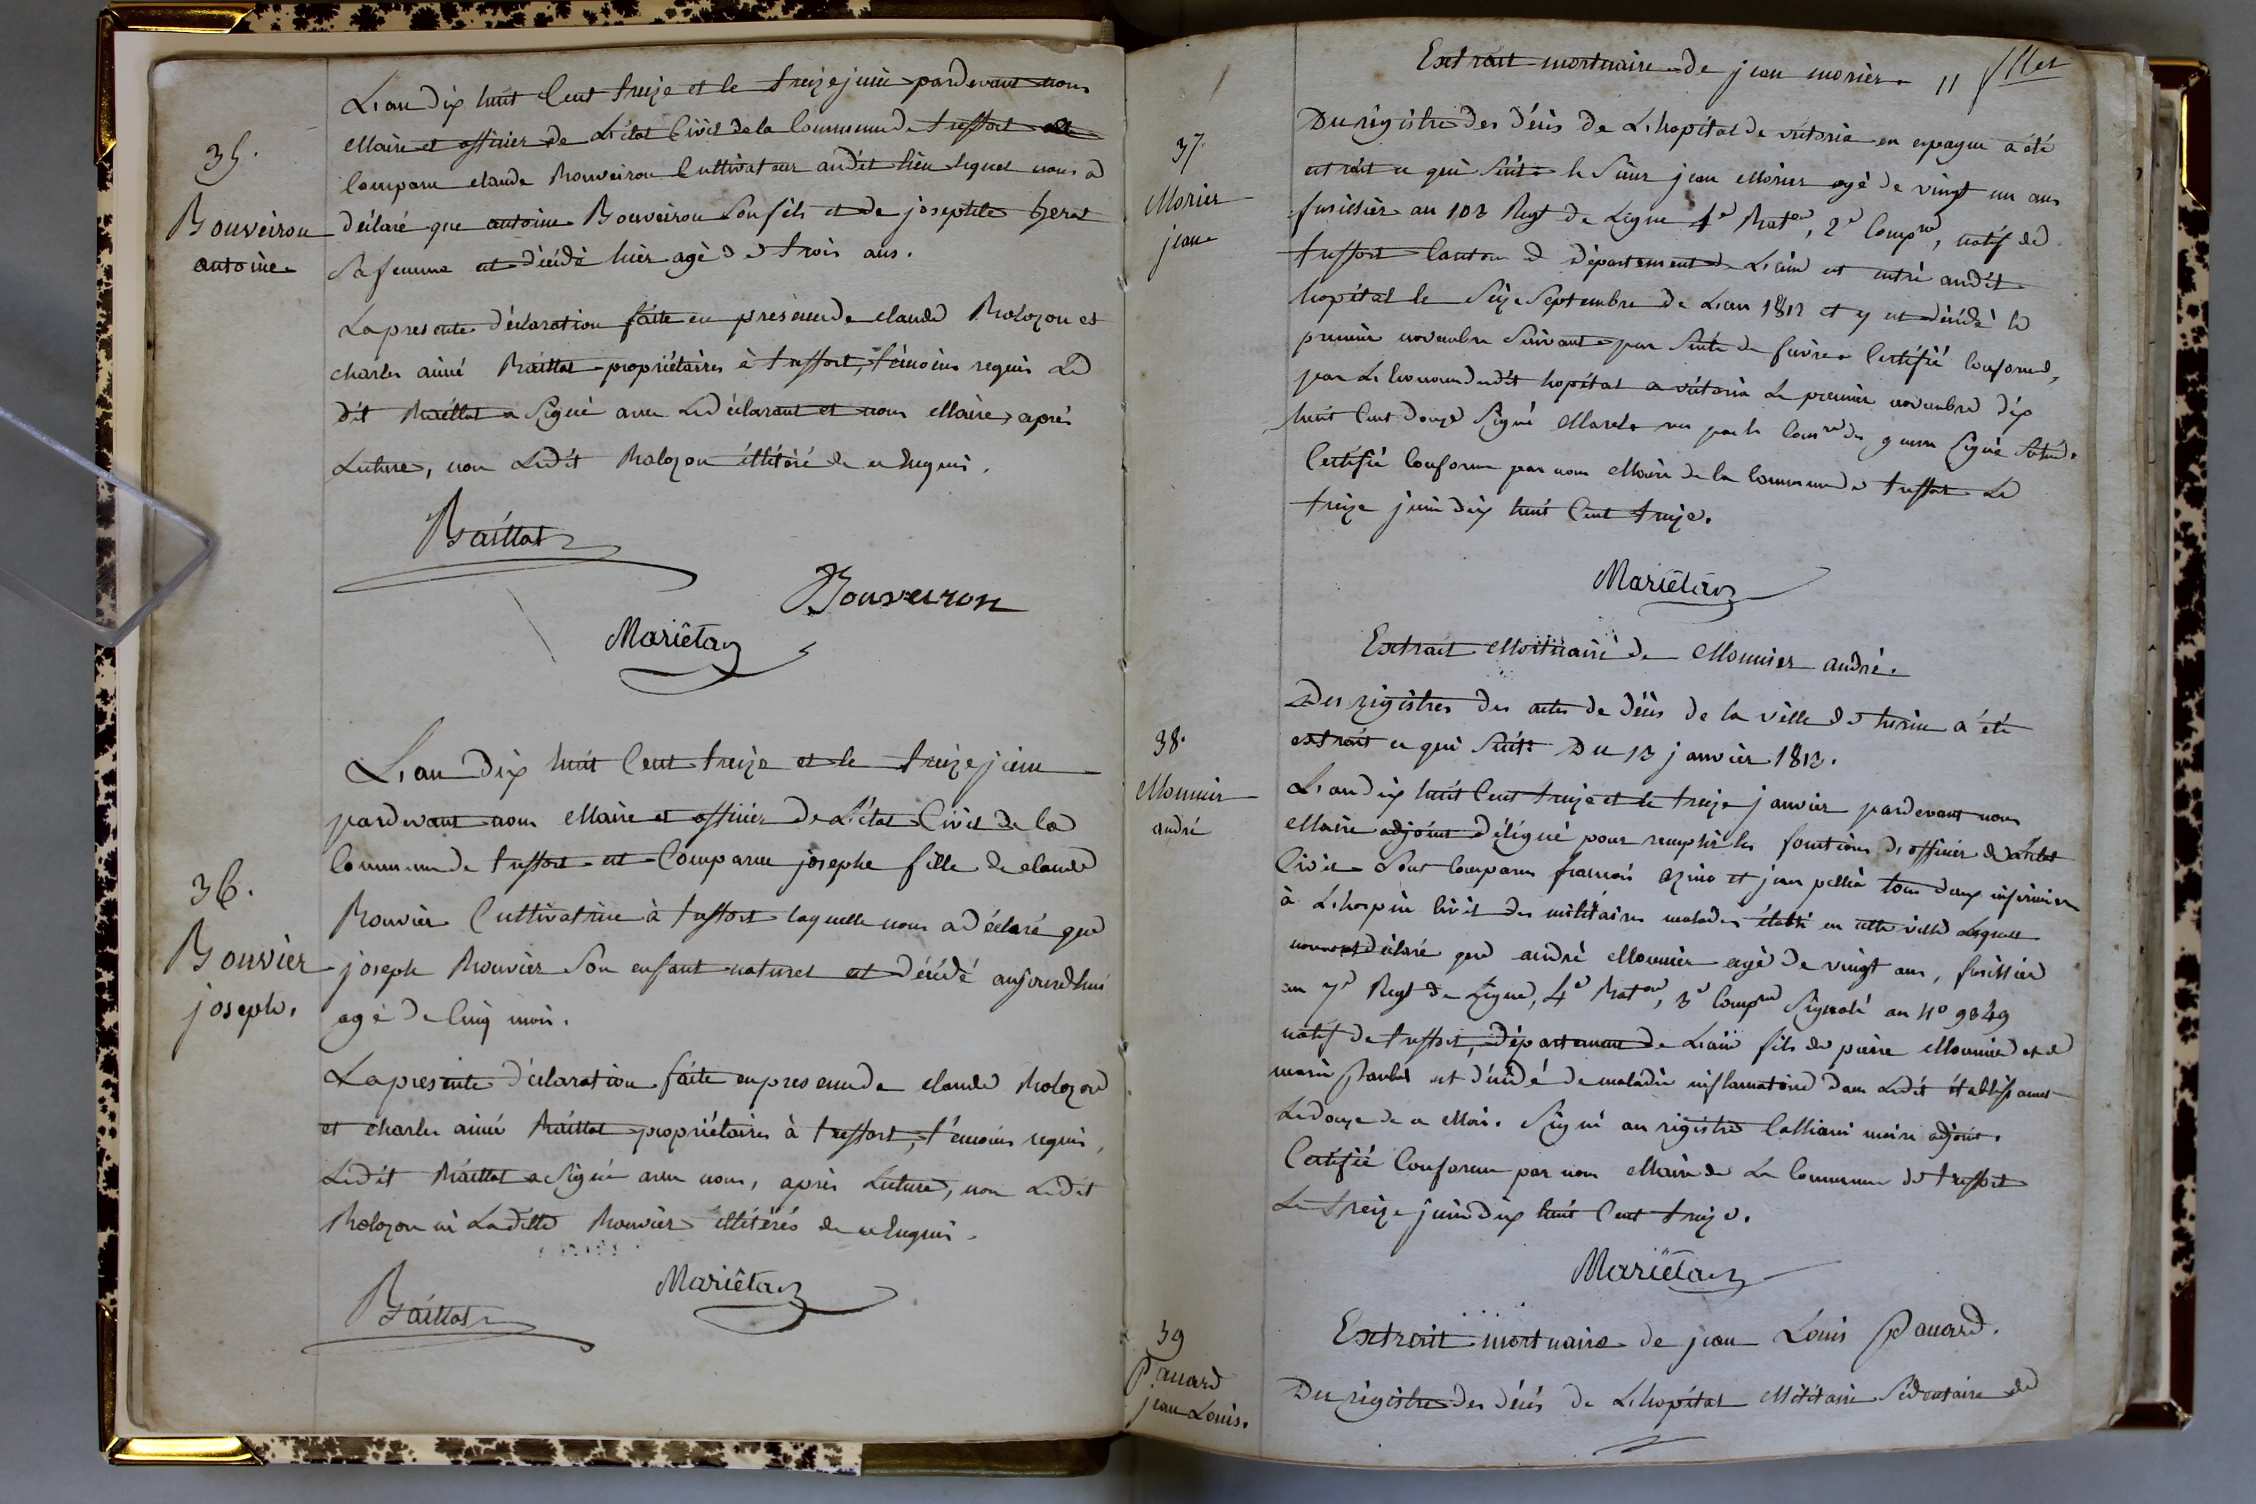 L'an dix huit Cent treize et le treize juin pardevant nous
Maire et officier de L'état Civil de la Commune de treffort est
Comparu claude Bouveiron Cultivateur audit lieu lequel nous a
35.
Bouveiron
antoine
déclaré que antoine Bouveiron son fils et de josephte
sa femme est décédé hier agé de trois ans.
La presente déclaration faite en presence de claude Bolozon et
charles aimé Baillat propriétaires à treffort, témoins requis Le
dit Baillat a signé avec Le déclarant et nous Maire, après
Lecture, non Ledit Bolozon illitéré de ce Enquis.
Baillat
Bouveiron
Mariêtan
L'an dix huit Cent treize et le treize juin
pardevant nous Maire et officier de L'état Civil de la
Commune de treffort est Comparue josephe fille de claude
36.
Bouvier
joseph.
Bouvier Cultivatrice à treffort laquelle nous a déclaré que
joseph Bouvier son enfant naturel est décédé aujourdhui
agé de Cinq mois.
La presente déclaration faite en presence de claude Bolozon
et charles aimé Baillat propriétaires à treffort, témoins requis,
Ledit Baillat a signé avec nous, après Lecture, non Ledit
Bolozon ni Ladite Bouvier illitérés de ce Enquis.
Mariêtan
Baillat
Extrait mortuaire de jean morier. 11
37.
Morier
jean
Du régistre des décès de L'hopital de victoria en espagne a été
extrait ce qui suit: le Sieur jean Morier agé de vingt un ans
fusillier au 103 Regt de Ligne 4e Baton, 2e Compnie, natif de
treffort Canton d département de L'ain est entré audit
hopital le seize Septembre de L'an 1812 et y est décédé le
premier novembre suivant par suite de fièvre. Certifié Conforme
par L'économe dudit hopital a victoria Le premier novembre dix
huit Cent douze Signé vu par le Comre des guerres Signé
Certifié Conforme par nous Maire de la Commune de treffort Le
treize juin dix huit Cent treize.
Mariêtan
Extrait Mortuaire de Monnier andré.
38.
Monnier
andré
Des régistres des actes de décès de la ville de turin a été
extrait ce qui suit: Du 13 janvier 1813.
L'an dix huit Cent treize et le treize janvier pardevant nous
Maire adjoint délégué pour remplir les fonctions d'officier de L'état
Civil Sont Comparus francois et jean tous deux infirmiers
à L'hospice Civil des militaires malades établi en cette ville Lesquels
nous ont déclaré que andré Monnier agé de vingt ans, fusillier
au 7e Regt de Ligne, 4e Baton, 3e Compnie Signalé au No 9849
natif de treffort, département de L'ain fils de pierre Monnier et de
marie est décédé de maladie inflamatoire dans Ledit établissement
Le douze de ce Mois. Signé au régistre Calliani maire adjoint.
Certifié Conforme par nous Maire de La Commune de treffort
Le treize juin dix huit Cent treize.
Mariêtan
39
Panard
jean Louis.
Extrait mortuaire de jean Louis Panard.
Du régistre des décès de L'hopital Militaire Sédentaire de